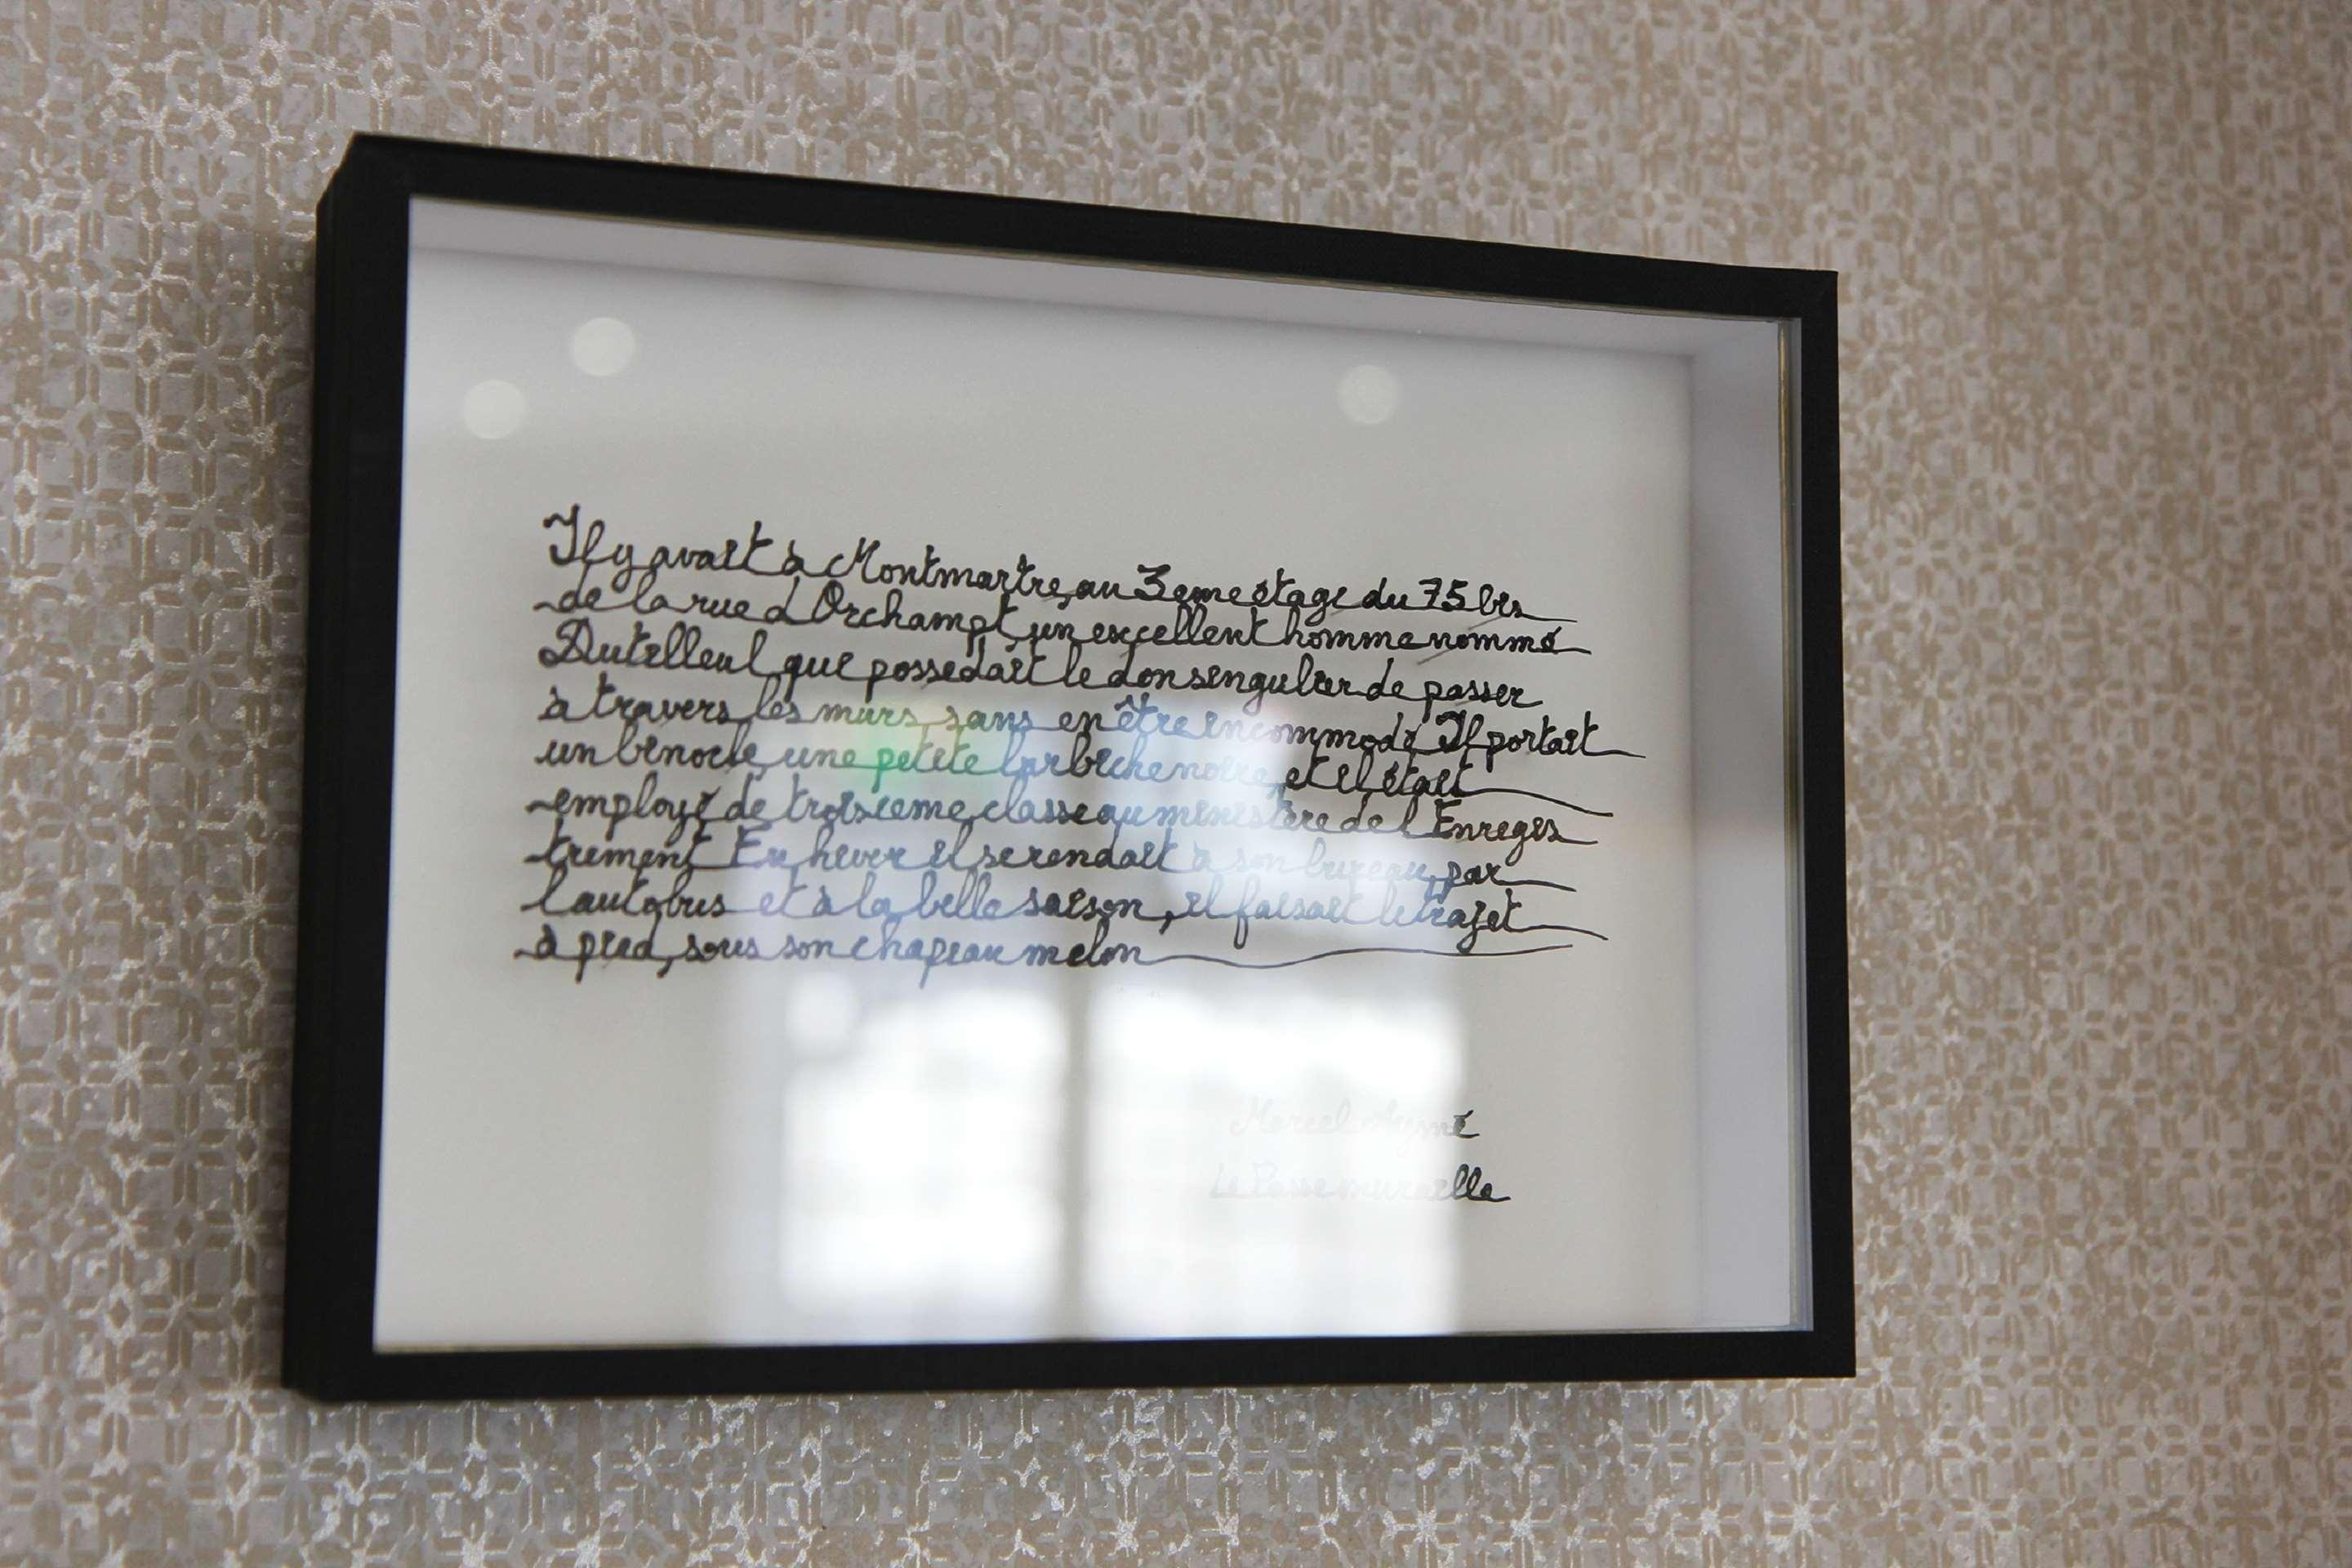 Il y avait à Montmartre, au 3eme étage du 75 bis
de la rue d Orchampt, un excellent homme nommé
Dutilleul qui possedait le don singulier de passer
à travers les murs, sans en être incommodé Il portait
un binocle, une petite barbiche noire, et il était
employé de troisieme classe au ministère de l Enregis
trement En hiver il se rendait à son bureau, par
l autobus et à la belle saison, il faisait le trajet
à pied, sous son chapeau melon
Marcel Aymé
Le Passe muraille